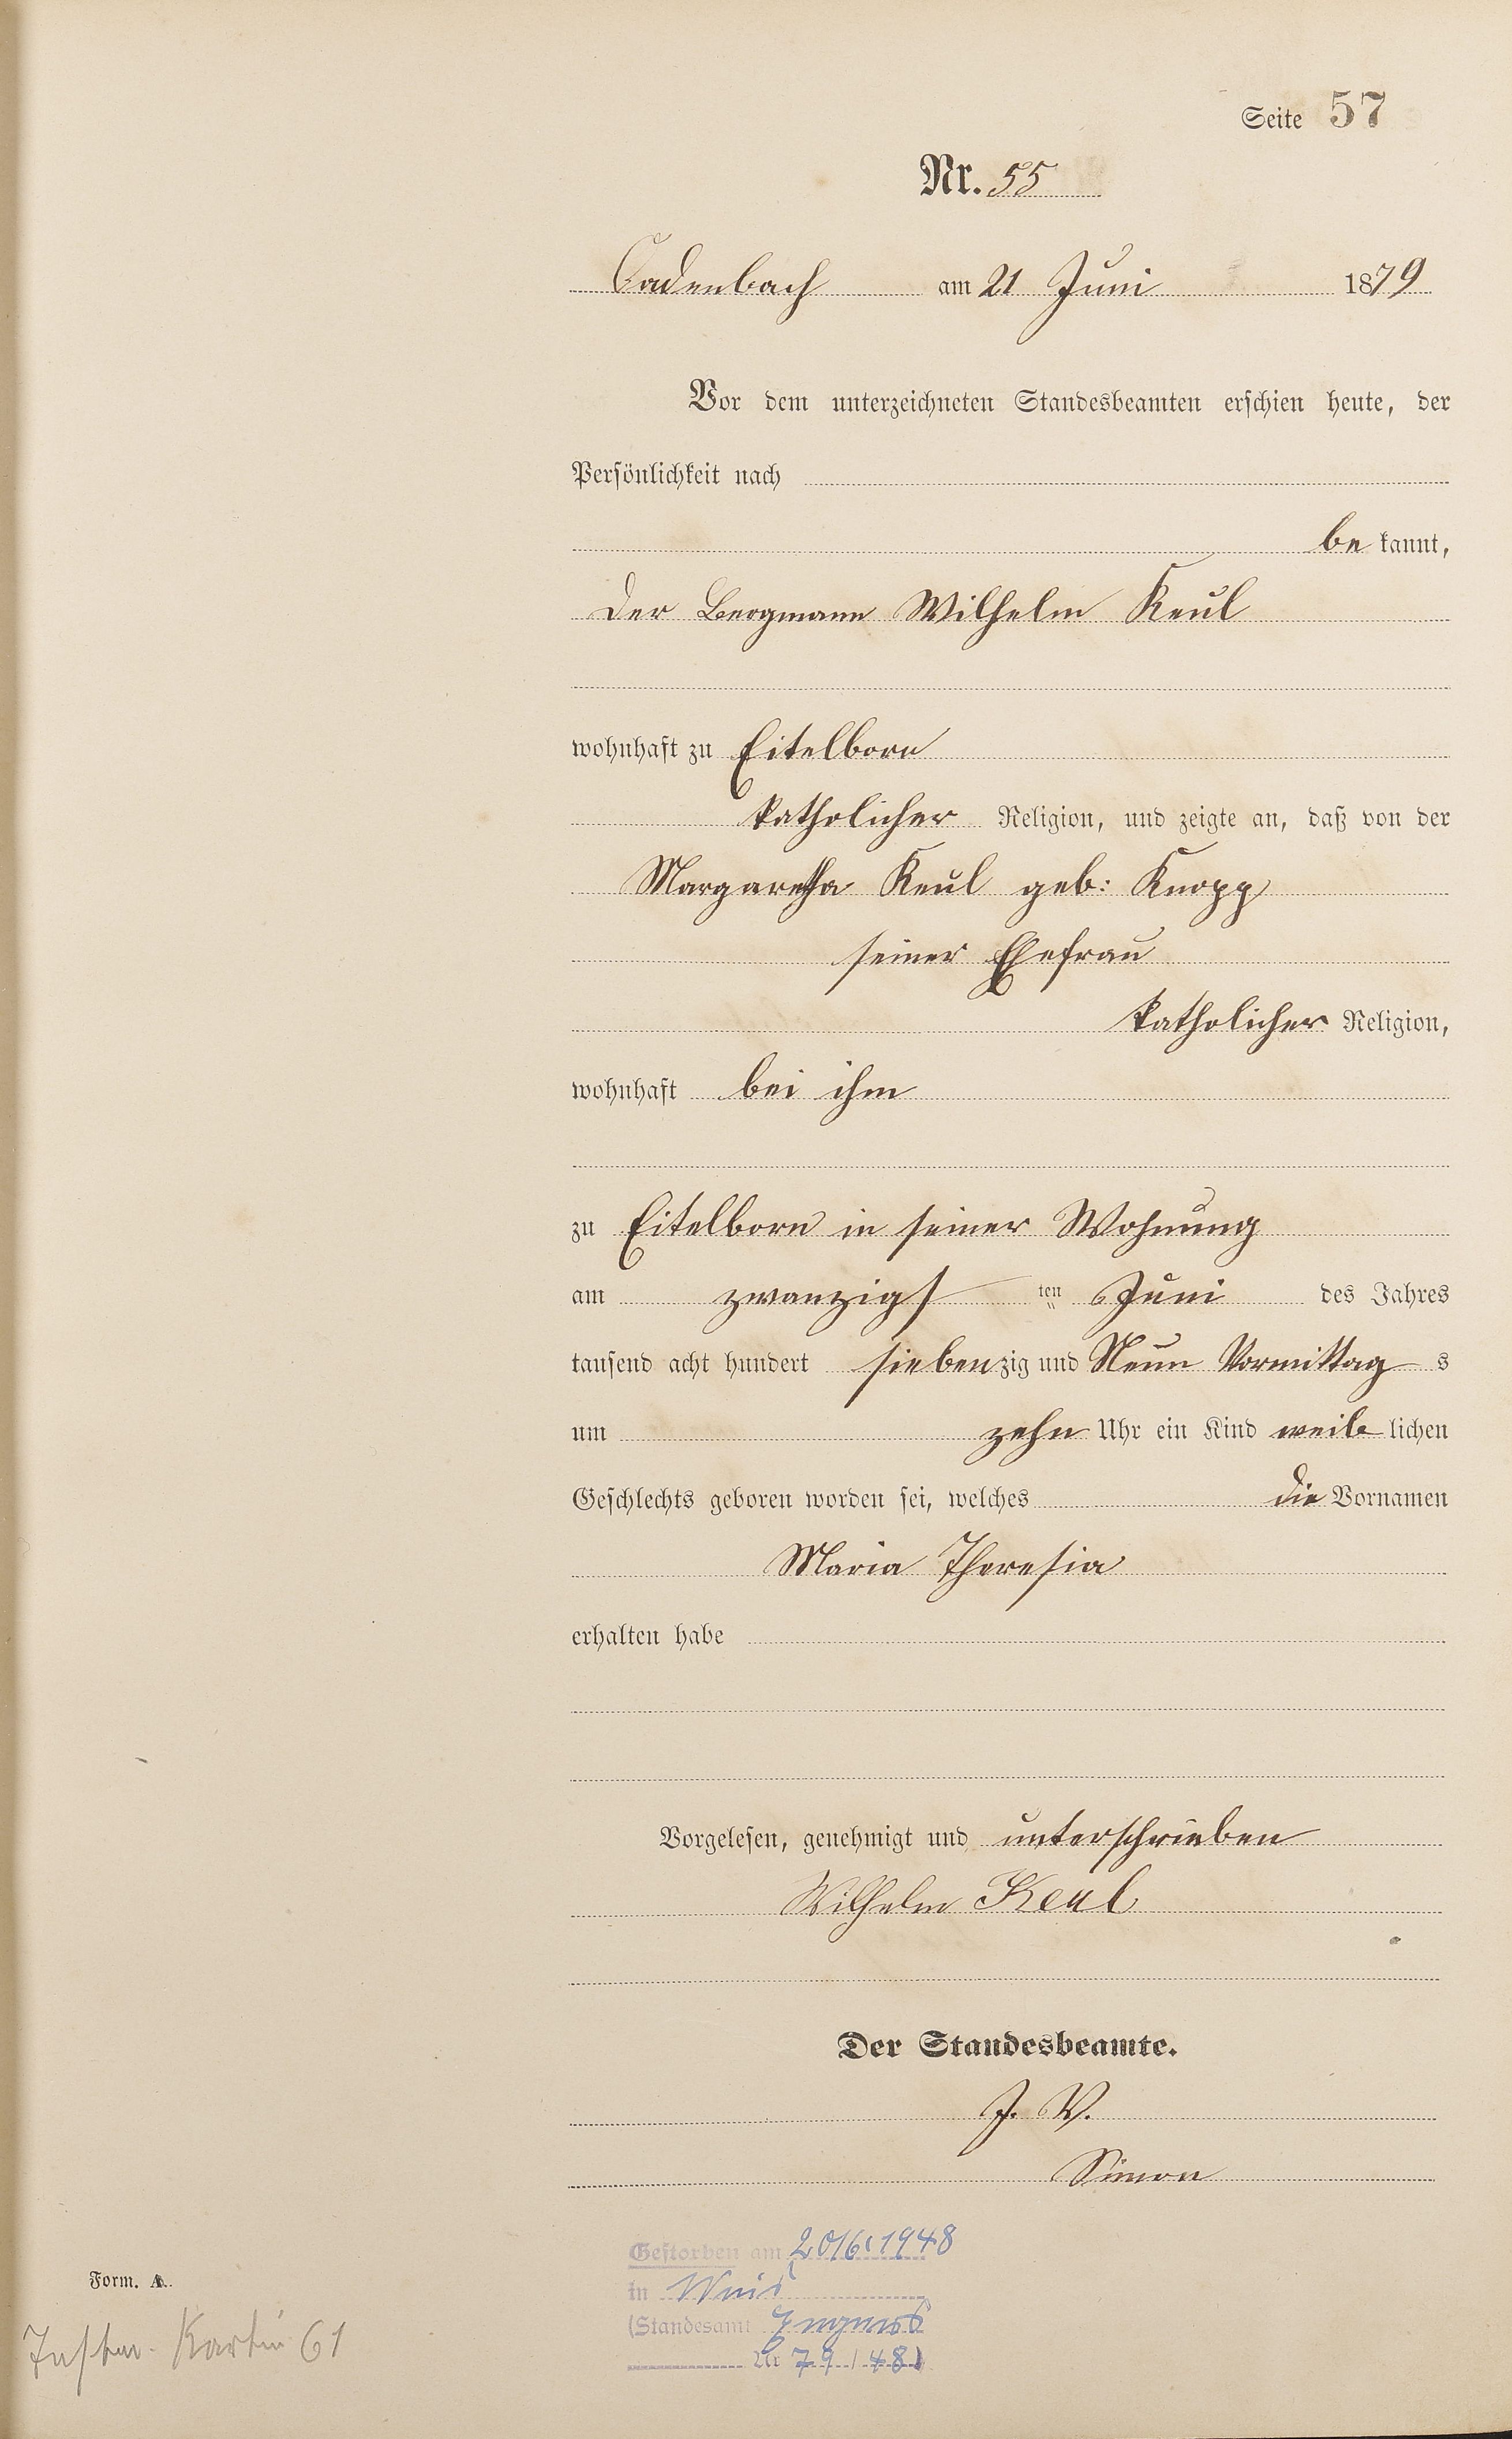 Seite 57
Nr. 55
Cadenbach am 21 Juni 1879
Vor dem unterzeichneten Standesbeamten erschien heute, der
Persönlichkeit nach
be kannt,
der Bergmann Wilhelm Keul
wohnhaft zu Eitelborn
katholicher Religion, und zeigte an, daß von der
Margaretha Keul geb: Knopp
seiner Ehefrau
katholicher Religion,
wohnhaft bei ihm
zu Eitelborn in seiner Wohnung
am zwanzigs ten Juni des Jahres
tausend acht hundert siebenzig und Neun Vormittag s
um zehn Uhr ein Kind weib lichen
Geschlechts geboren worden sei, welches die Vornamen
Maria Theresia
erhalten habe
Vorgelesen, genehmigt und unterschrieben
Wilhelm Keul
Der Standesbeamte.
J. V.
Simon
Gestorben am 20/6.1948
in Weis
(Standesamt Engers
Nr 79 / 48)
Form. A.
Kartei 61